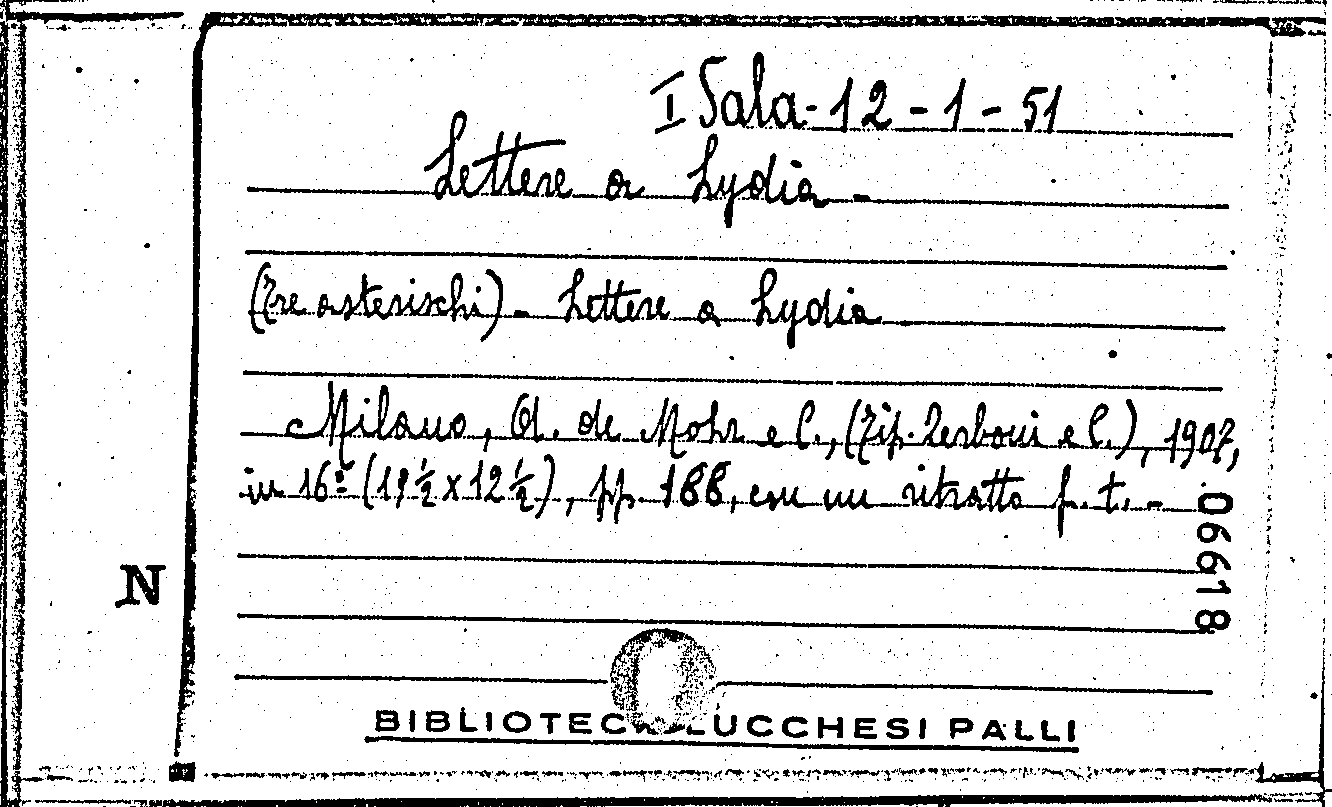 I Sala - 12 - 1 - 51
Lettere a Lydia -
(Tre asterischi) - Lettere a Lydia
Milano, A. de Mohr e C., (Tip. Zerboni e C.), 1907,
in 16º (19 ½ x 12 ½), pp. 188, con un ritratto f. t. -
06618
N
BIBLIOTECA LUCCHESI PALLI